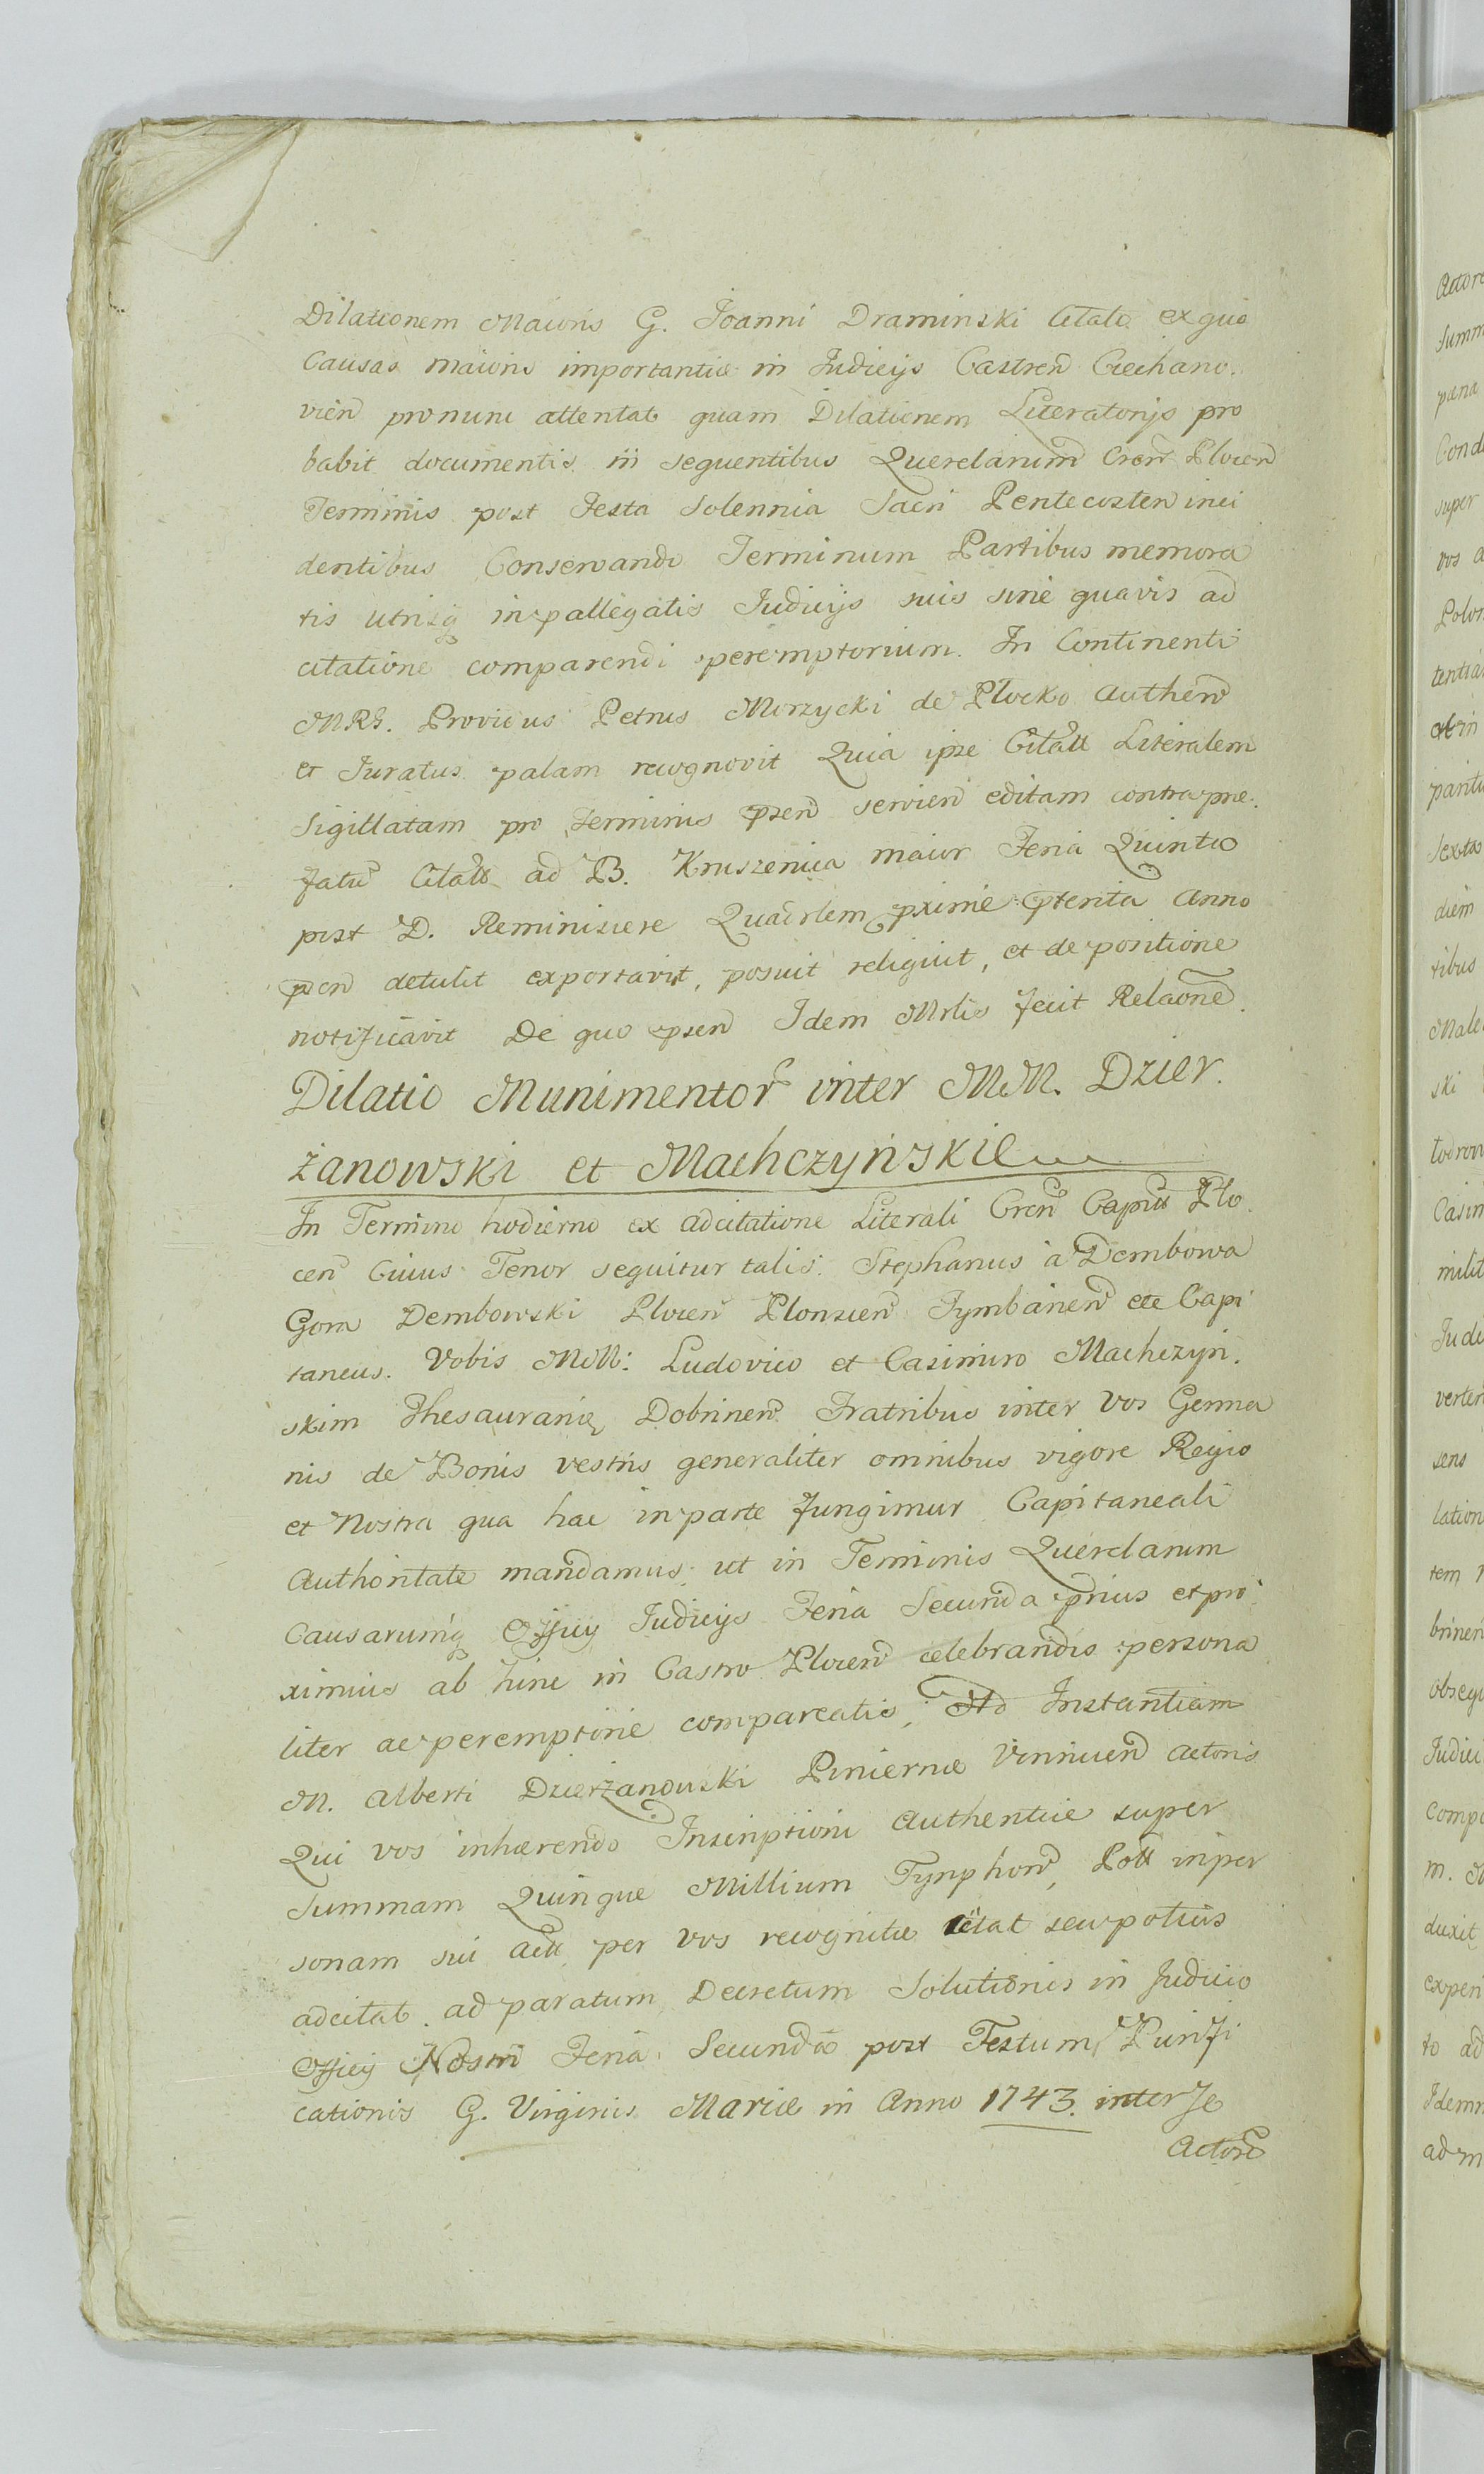 Dilationem Maioris G. Joanni Draminski Citato ex quo
Causas maioris importantiæ in Judicijs Castreñ Ciechano.
vieñ pro nunc attentat quam Dilationem Literatorijs pro
babit documentis in sequentibus Querelarum Creñ Ploceñ
Terminis post Festa Solennia Sacri Pentecosten inci
dentibus Conservando Terminum Partibus memora
tis utrisq in pallegatis Judicijs suis sine quavis ad
citatione comparendi peremptorium. In Continenti
MRG. Providus Petrus Morzycki de Plocko Autheñ
et Juratus palam recognovit Quia ipse Citatt Literalem
Sigillatam pro Terminis pseñ servieñ editam contra præ.
fatũ Citatt ad B. Kruszenica maior Feria Quinta
post D. Reminiscere Quadrlem pxime pterita Anno
pseñ detulit exportavit, posuit reliquit, et de positione
notificavit De quo pseñ Idem Mrlis fecit Relaonẽ.
Dilatio Munimentor inter M.M. Dzier.
żanowski et Machczyńskie
In Termino hodierno ex adcitatione Literali Creñ Capitt Plo.
ceñ Cuius Tenor sequitur talis. Stephanus à Dembowa
Gora Dembowski Ploceñ Plonsceñ Tymbarieñ etc Capi
taneus. Vobis MM: Ludovico et Casimiro Machczyń.
skim Thesaurarię Dobrineñ Fratribus inter vos Germa
nis de Bonis vestris generaliter omnibus vigore Regio
et Nostra qua hac in parte fungimur Capitaneali
Authoritate mandamus ut in Terminis Querelarum
Causarumq Officij Judicijs Feria Secunda prius et pro
ximius ab hinc in Castro Ploceñ celebrandis persona
liter ac peremptorie compareatis, Ad Instantiam
M. Alberti Dzierżanowski Pincernæ Vinniceñ Actoris
Qui vos inhærendo Inscriptioni Authenticæ super
Summam Quinque Millium Tynphoñ, Poll in per
sonam sui Actt per vos recognitæ citat seu potius
adcitat ad paratum Decretum Solutionis in Judicio
Officij Nostri Feria Secunda post Festum Purifi
cationis G. Virginis Mariæ in Anno 1743. inter Se
Actorẽ